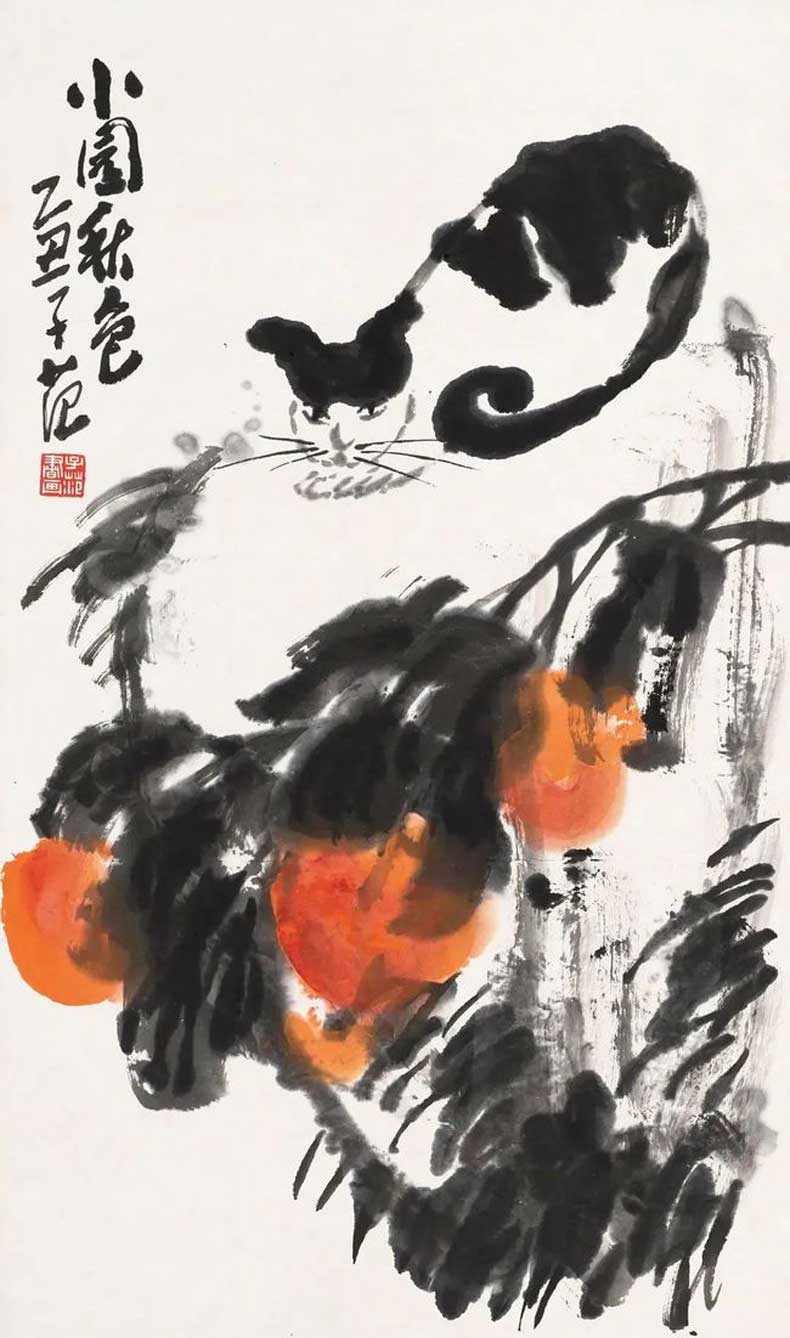 小園秋色
乙丑子范
子范書画